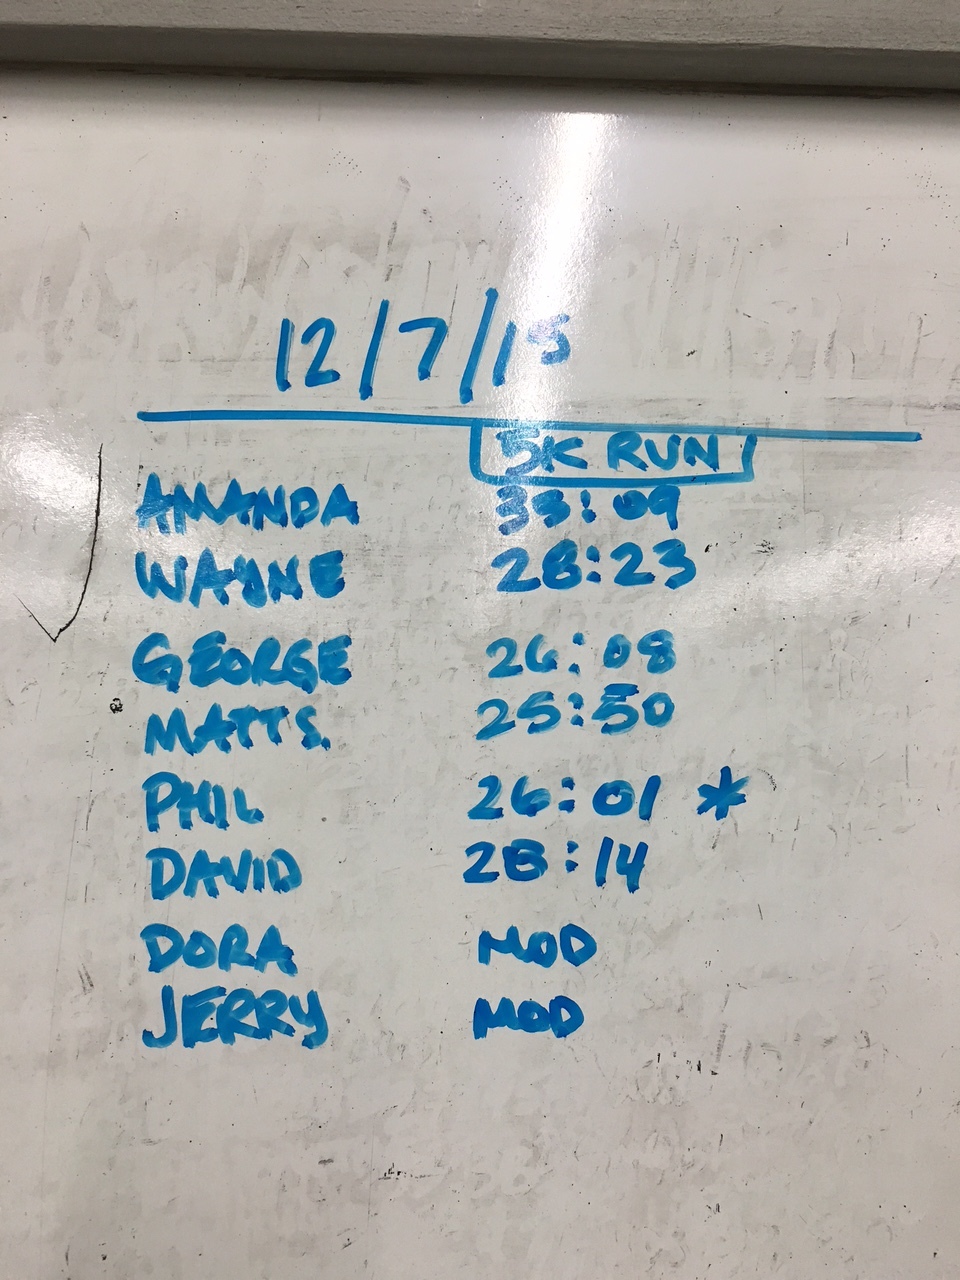 12/7/15
5K RUN
AMANDA 35:09
WAYNE 28:23
GEORGE 26:08
MATTS. 25:50
PHIL 26:01 *
DAVID 28:14
DORA MOD
JERRY MOD